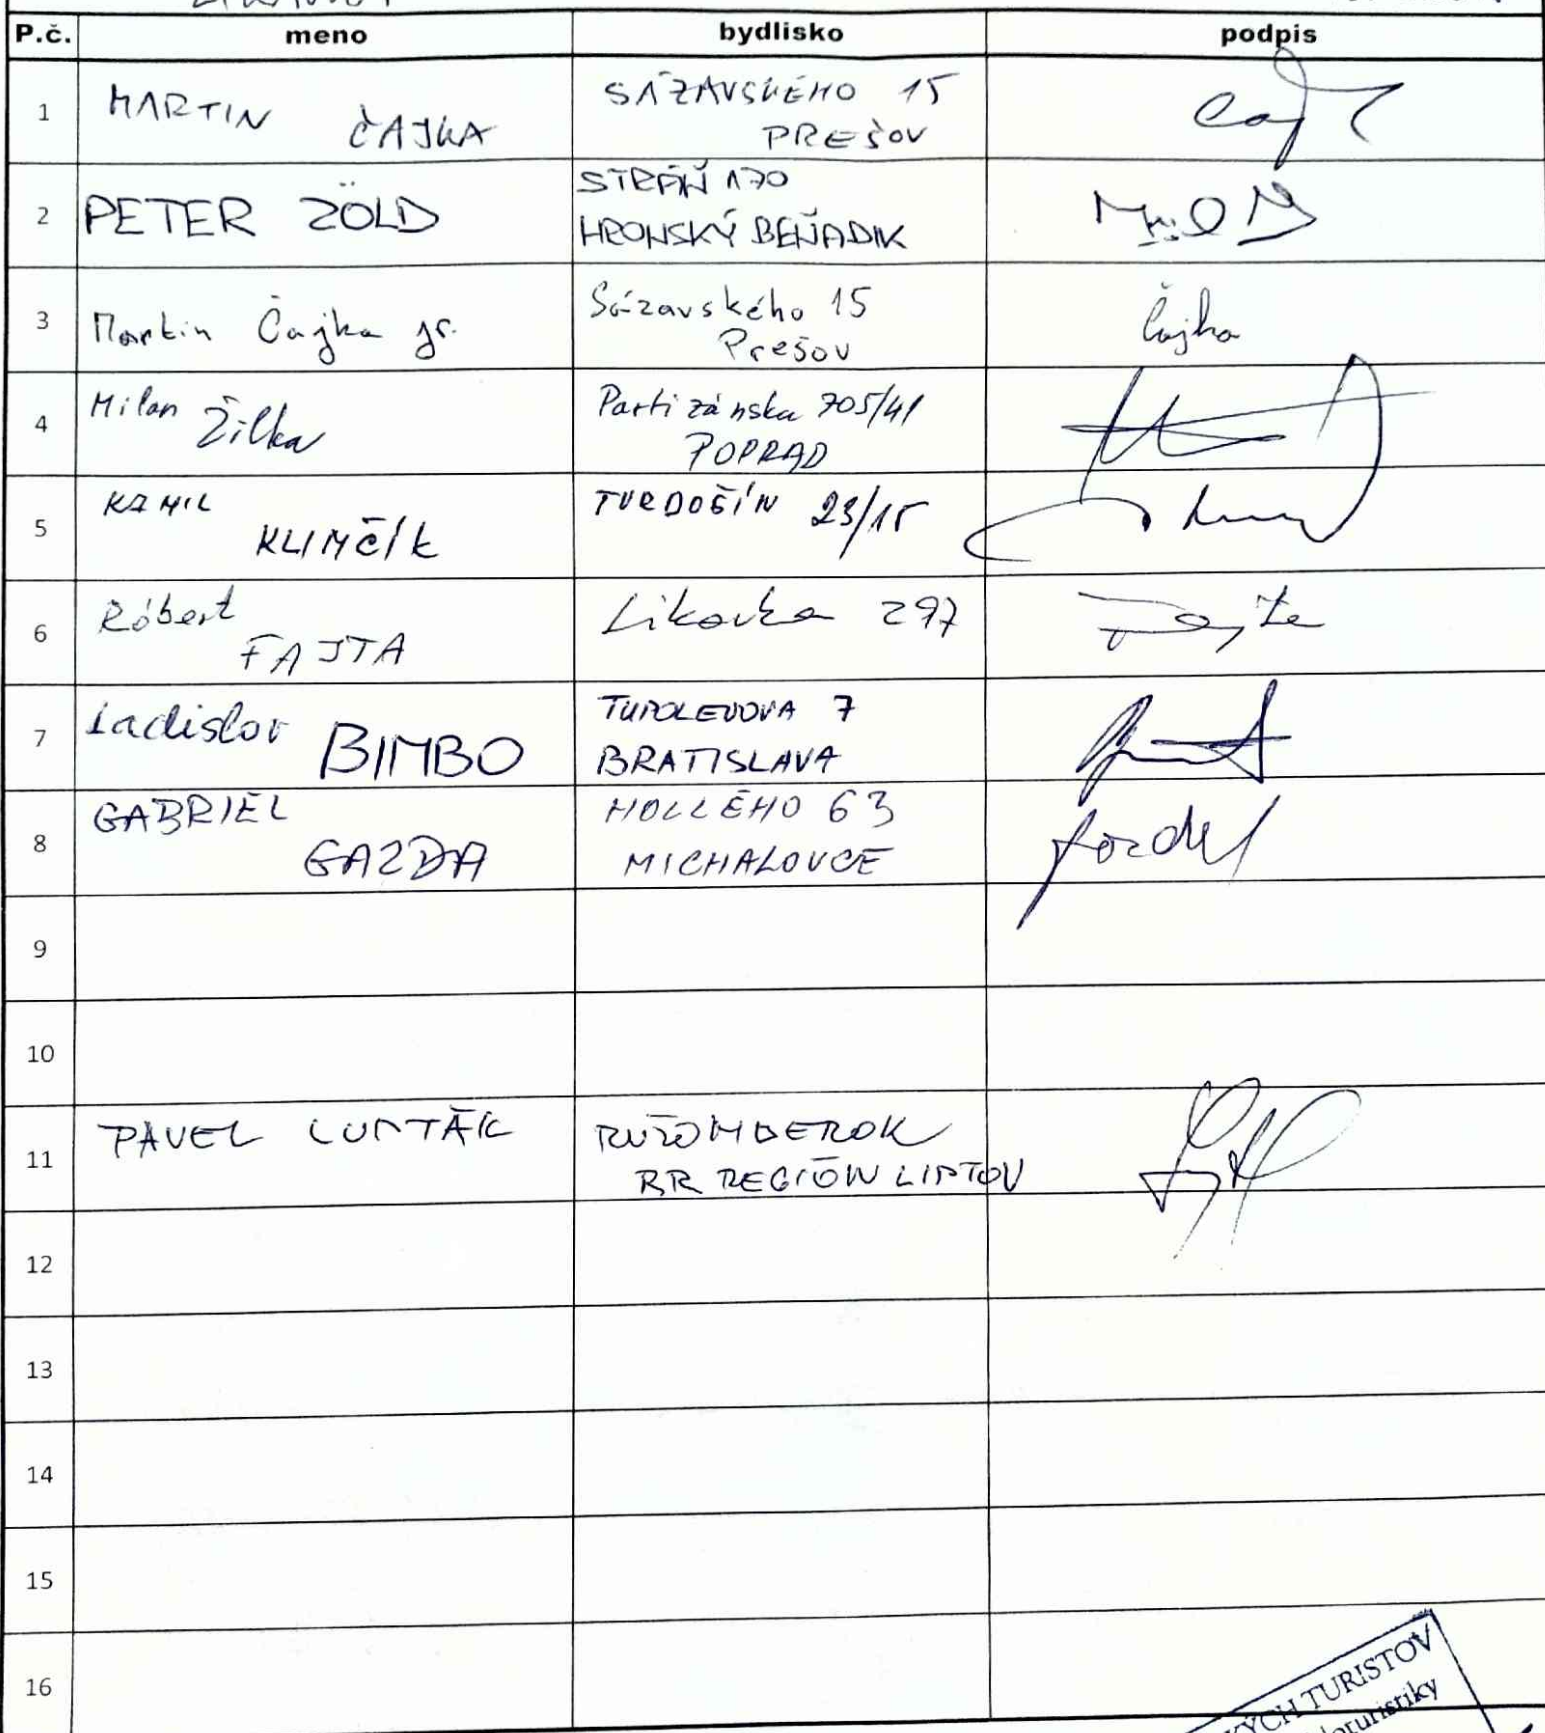 P.č. meno bydlisko podpis
1 MARTIN ČAJKA SÁZAVSKÉHO 15
PREŠOV
2 PETER ZÖLD STRÁŇ 170
HRONSKÝ BEŇADIK
3 Martin Čajka jr. Sázavského 15
Prešov Čajka
4 Milan Žilka Partizánska 705/41
POPRAD
5 KAMIL
KLIMČÍK TVRDOŠÍN 23/15
6 Róbert
FAJTA Likavka 297 Fajta
7 Ladislav BIMBO TUPOLEVOVA 7
BRATISLAVA
8 GABRIEL
GAZDA HOLLÉHO 63
MICHALOVCE
9
10
11 PAVEL LUPTÁK RUŽOMBEROK
RR REGIÓN LIPTOV
12
13
14
15
16
KÝCH TURISTOV
oturistiky